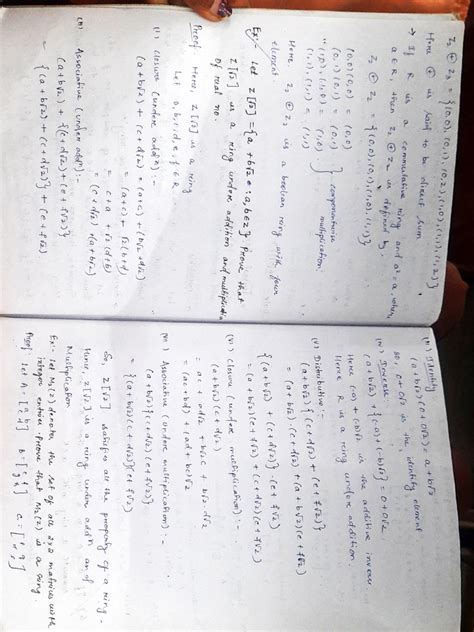 Z₂ ⊕ Z₃ = {(0,0), (0,1), (0,2), (1,0), (1,1), (1,2)}
Here ⊕ is said to be direct sum.
→ If R is a commutative ring and at a, when
a ∈ R, then Z₂ ⊕ Z₂ is defined by,
Z₂ ⊕ Z₂ = {(0,0), (0,1), (1,0), (1,1)}
(0,0) (0,0) = (0,0)
(0,1) (0,1) = (0,1)
(1,0) (1,0) = (1,0)
(1,1) (1,1) = (1,1)
componentwise
multiplication.
Here Z₂ ⊕ Z₂ is a boolean ring with four
element.
Ex:- Let Z[√2] = {a + b√2 : a, b ∈ Z} Prove that
Z[√2] is a ring under addition and multiplication
of real no.
Proof Here, Z[√2] is a ring
Let a, b, c, d, e, f ∈ R
(i) Closure (under addn) :-
(a+b√2) + (c+d√2) = (a+c) + (b√2 d√2)
= (a+c) + √2(b+d)
= c+a + √2(d+b)
= (c+d√2) + (a+b√2)
(ii) Associative (under addn) :-
(a+b√2) + {(c+d√2) + (e+f√2)}
= {(a+b√2) + (c+d√2)} + (e+f√2)
Identity
(a+b√2) + (0+0√2) = a+b√2
so, 0+0√2 is the identity element
(iv) Inverse
(a+b√2) + {-a) + c-b)√2} = 0+0√2
Here (-a) + c-b)√2 is the additive inverse.
Hence R is a ring under addition.
(v) Distributive :-
(a+b√2) {(c+d√2) + (e+f√2)}
= (a+b√2)·(c+d√2) + (a+b√2)(e+f√2)
{(a+b√2) + (c+d√2)}·(e+f√2)
= (a+b√2)(e+f√2) + (c+d√2)(e+f√2)
(vi) Closure (under multiplication) :-
(a+b√2)(c+d√2)
= ac + ad√2 + b√2c + b√2·d√2
= (ac+bd) + (ad+bc)√2
(vii) Associative (under multiplication) :-
(a+b√2){(c+d√2)(e+f√2)}
= {(a+b√2)(c+d√2)}(e+f√2)
So, Z[√2] satisfies all the property of a ring.
Hence, Z[√2] is a ring under addn and of
Multiplication
Ex: Let M₂(Z) denote the set of all 2×2 matrices with
integer entries. Prove that M₂(Z) is a ring.
Proof Let A =